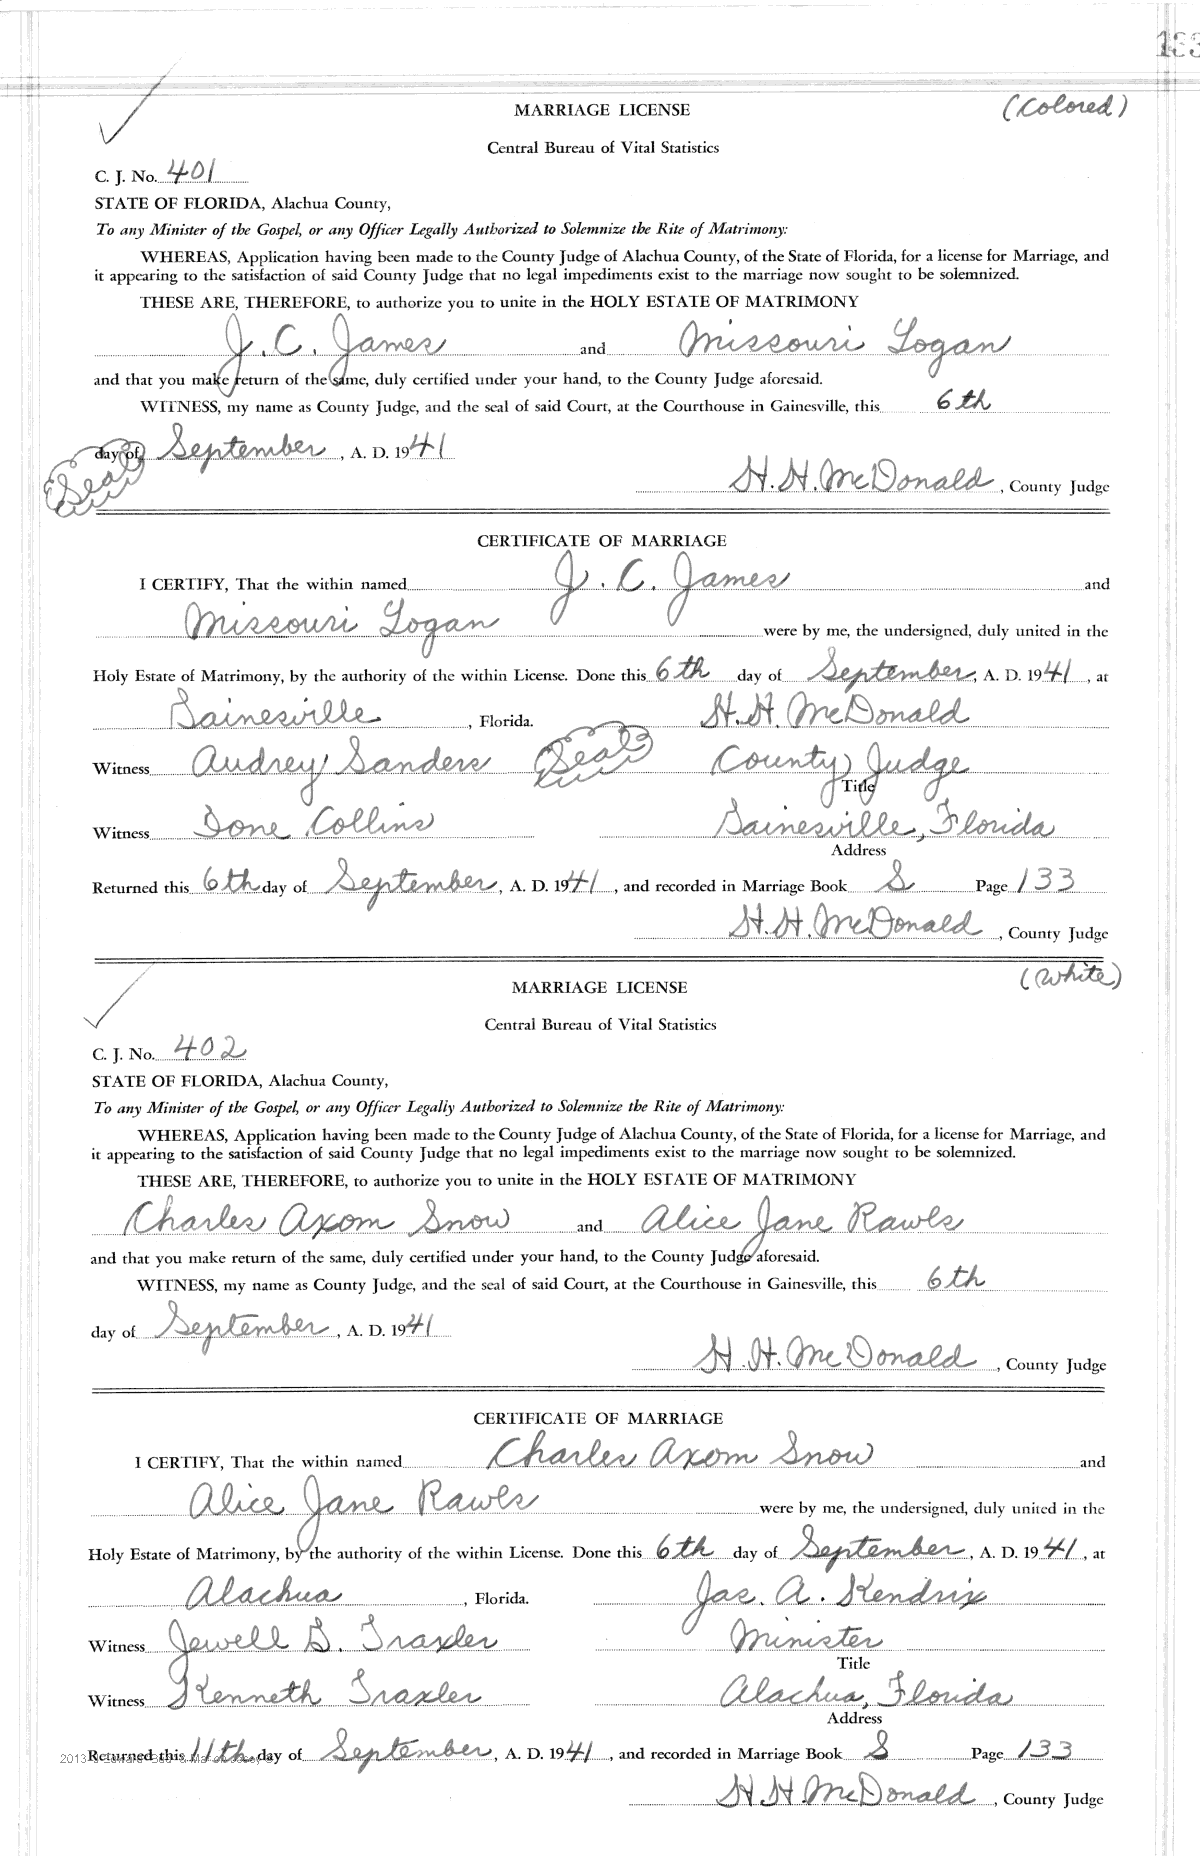 133
MARRIAGE LICENSE (Colored)
Central Bureau of Vital Statistics
C. J. No. 401
STATE OF FLORIDA, Alachua County,
To any Minister of the Gospel, or any Officer Legally Authorized to Solemnize the Rite of Matrimony:
WHEREAS, Application having been made to the County Judge of Alachua County, of the State of Florida, for a license for Marriage, and
it appearing to the satisfaction of said County Judge that no legal impediments exist to the marriage now sought to be solemnized.
THESE ARE, THEREFORE, to authorize you to unite in the HOLY ESTATE OF MATRIMONY
J. C. James and Missouri Logan
and that you make return of the same, duly certified under your hand, to the County Judge aforesaid.
WITNESS, my name as County Judge, and the seal of said Court, at the Courthouse in Gainesville, this 6th
day of September, A. D. 1941
Seal
H. H. McDonald, County Judge
CERTIFICATE OF MARRIAGE
I CERTIFY, That the within named J. C. James and
Missouri Logan were by me, the undersigned, duly united in the
Holy Estate of Matrimony, by the authority of the within License. Done this 6th day of September, A. D. 1941, at
Gainesville, Florida. H. H. McDonald
Witness Audrey Sanders Seal County Judge
Title
Witness Ione Collins Gainesville, Florida
Address
Returned this 6th day of September, A. D. 1941, and recorded in Marriage Book S Page 133
H. H. McDonald, County Judge
(White)
MARRIAGE LICENSE
Central Bureau of Vital Statistics
C. J. No. 402
STATE OF FLORIDA, Alachua County,
To any Minister of the Gospel, or any Officer Legally Authorized to Solemnize the Rite of Matrimony:
WHEREAS, Application having been made to the County Judge of Alachua County, of the State of Florida, for a license for Marriage, and
it appearing to the satisfaction of said County Judge that no legal impediments exist to the marriage now sought to be solemnized.
THESE ARE, THEREFORE, to authorize you to unite in the HOLY ESTATE OF MATRIMONY
Charles Axom Snow and Alice Jane Rawls
and that you make return of the same, duly certified under your hand, to the County Judge aforesaid.
WITNESS, my name as County Judge, and the seal of said Court, at the Courthouse in Gainesville, this 6th
day of September, A. D. 1941
H. H. McDonald, County Judge
CERTIFICATE OF MARRIAGE
I CERTIFY, That the within named Charles Axom Snow and
Alice Jane Rawls were by me, the undersigned, duly united in the
Holy Estate of Matrimony, by the authority of the within License. Done this 6th day of September, A. D. 1941, at
Alachua, Florida. Jas. A. Kendrix
Witness Jewell G. Traxler Minister
Title
Witness Kenneth Traxler Alachua, Florida
Address
Returned this 11th day of September, A. D. 1941, and recorded in Marriage Book S Page 133
2013
H. H. McDonald, County Judge